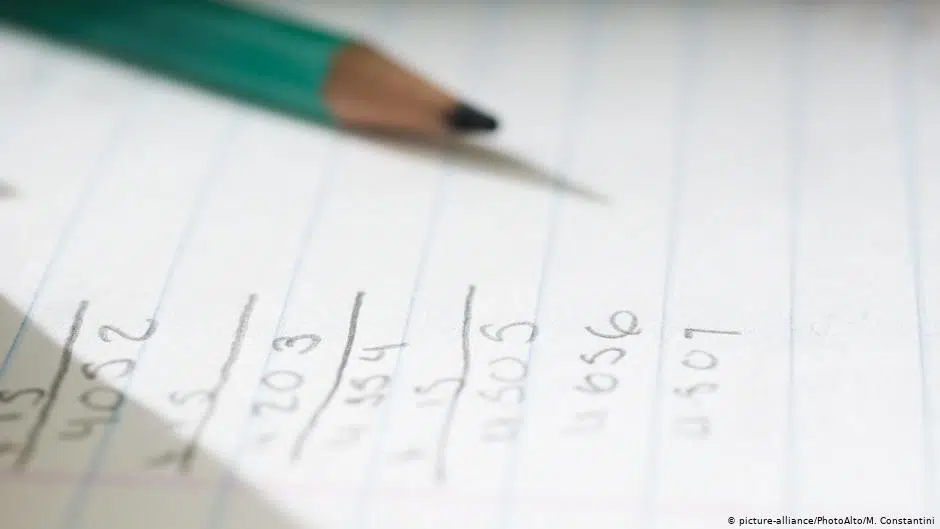 15
4052
15
203
4554
15
4505
4656
4507
© picture-alliance/PhotoAlto/M. Constantini